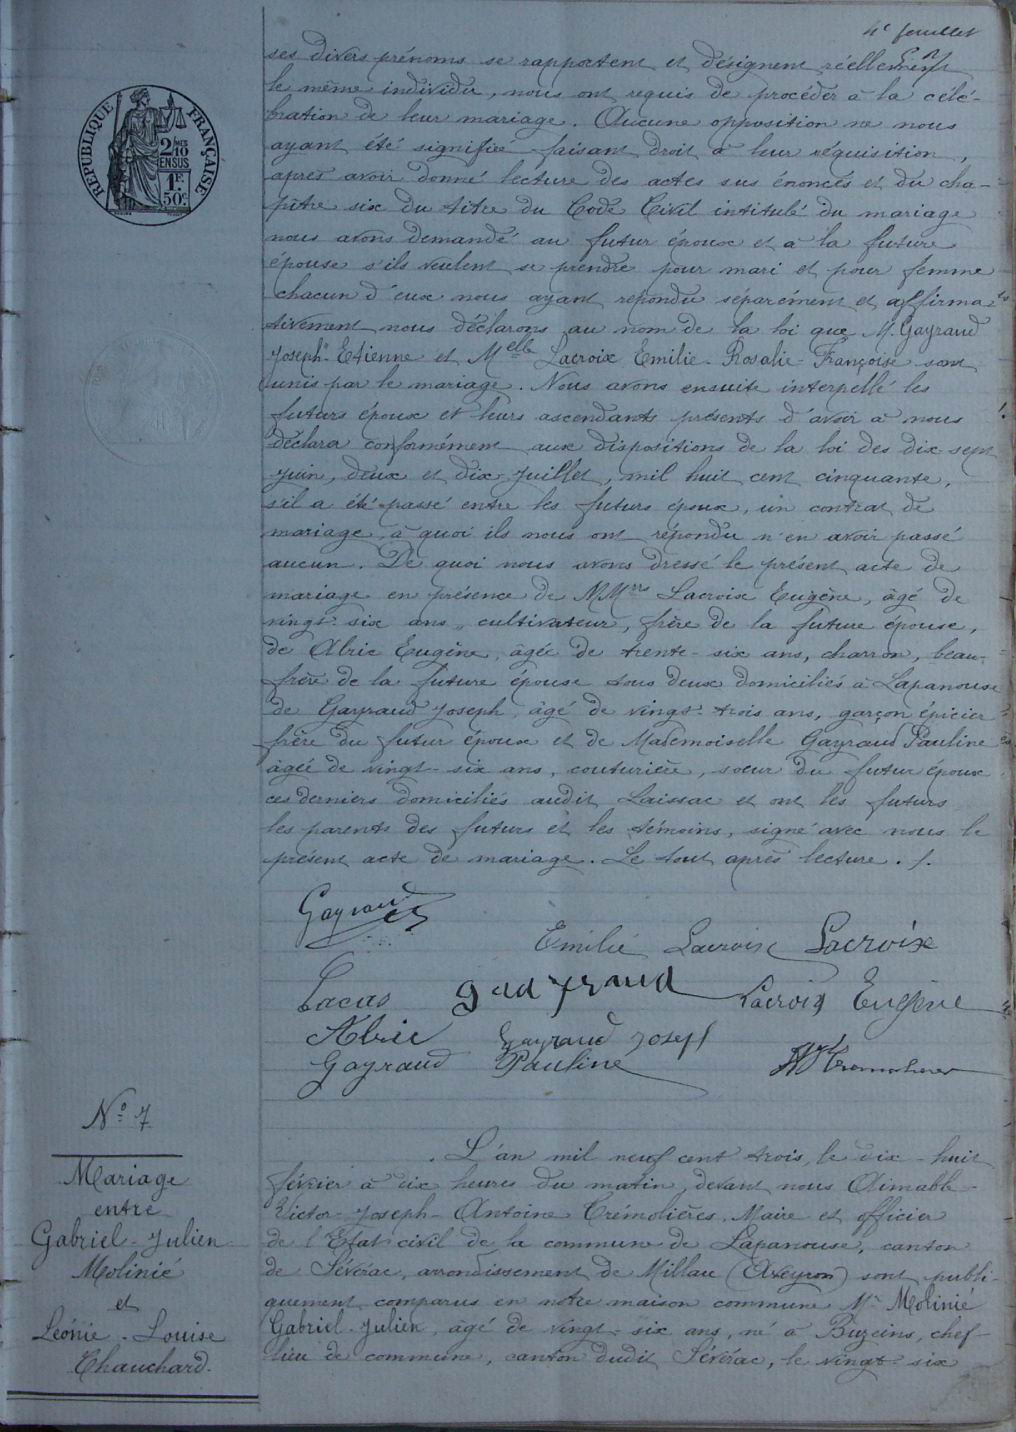 4e feuillet
RÉPUBLIQUE FRANÇAISE
2/10 MES
EN SUS
1F.
50c.
ses divers prénoms se rapportent et désignent réellement
le même individu, nous ont requis de procéder à la célé-
bration de leur mariage. Aucune opposition ne nous
ayant été signifiée faisant droit à leur réquisition,
après avoir donné lecture des actes sus énoncés et du cha-
pitre six du titre du Code Civil intitulé du mariage
nous avons demandé au futur époux et à la future
épouse s'ils veulent se prendre pour mari et pour femme
chacun d'eux nous ayant répondu séparément et affirma-
tivement nous déclarons au nom de la loi que M. Gayraud
Joseph-Etienne et Melle Lacroix Emilie-Rosalie-Françoise sont
unis par le mariage. Nous avons ensuite interpellé les
futurs époux et leurs ascendants présents d'avoir à nous
déclarer conformément aux dispositions de la loi des dix-sept
juin, deux et dix-juillet, mil huit cent cinquante,
s'il a été passé entre les futurs époux, un contrat de
mariage, à quoi ils nous ont répondu n'en avoir passé
aucun. De quoi nous avons dressé le présent acte de
mariage en présence de MMrs Lacroix Eugène, âgé de
vingt-six ans, cultivateur, frère de la future épouse,
de Alric Eugène, âgée de trente-six ans, charron, beau-
frère de la future épouse tous deux domiciliés à Lapanouse
de Gayraud Joseph, âgé de vingt-trois ans, garçon épicier
frère du futur époux et de Mademoiselle Gayraud Pauline
âgée de vingt-six ans, couturière, soeur du futur époux
ces derniers domiciliés audit Laissac et ont les futurs
les parents des futurs et les témoins, signé avec nous le
présent acte de mariage. Le tout après lecture. /.
Gayraud
Emilie Lacroix Lacroix
Lacas Lacroix Eugène
Alric Gayraud Joseph
Gayraud Pauline Tremolieres
No 7
Mariage
entre
Gabriel-Julien
Molinié
et
Léonie-Louise
Chauchard.
L'an mil neuf cent trois, le dix-huit
février à dix heures du matin, devant nous Aimable-
Victor-Joseph-Antoine Trémolières, Maire et officier
de l'Etat civil de la commune de Lapanouse, canton
de Sévérac, arrondissement de Millau (Aveyron) sont publi-
quement comparus en notre maison commune Mr Molinié
Gabriel-Julien, âgé de vingt-six ans, né à Buzeins, chef-
lieu de commune, canton dudit Sévérac, le vingt-six